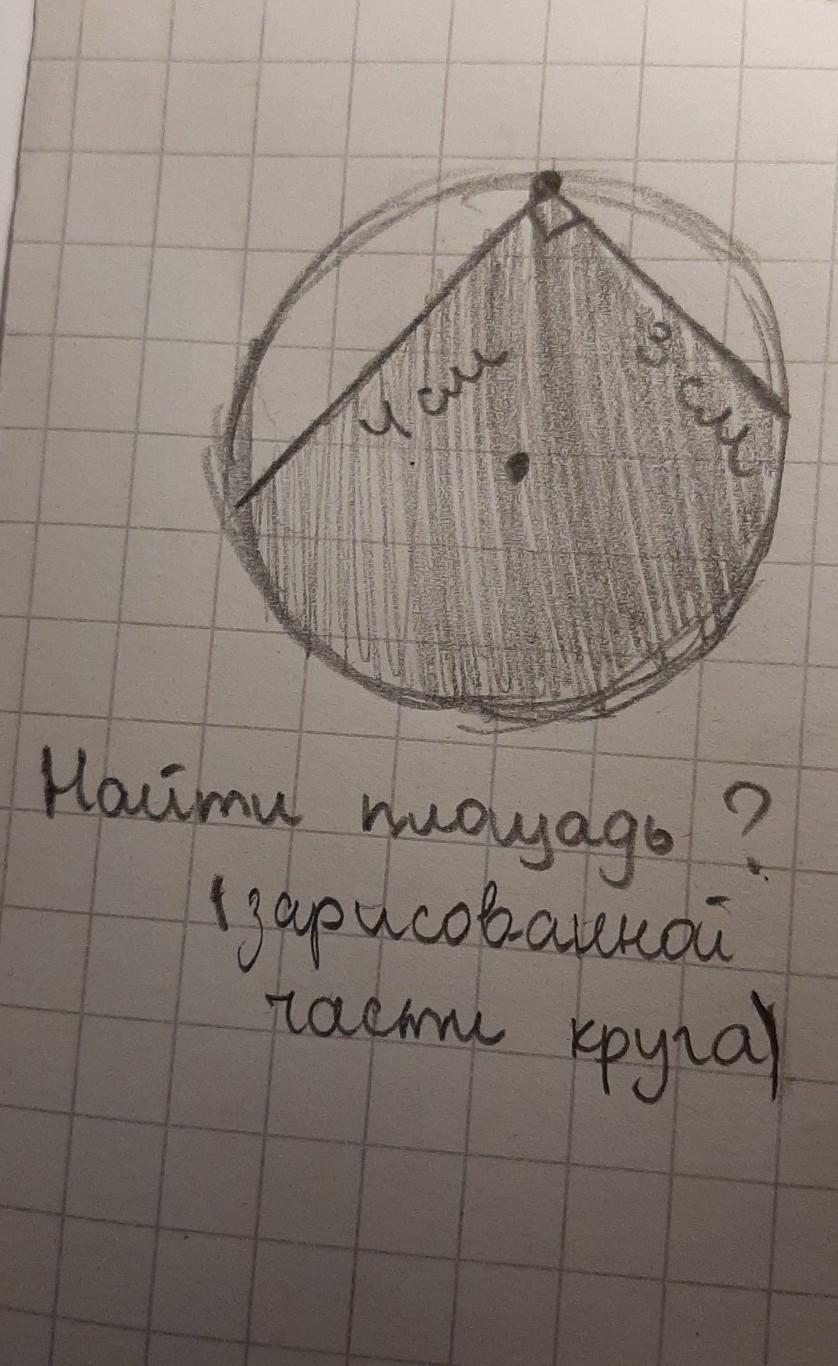 4 см
3 см
Найти площадь ?
(зарисованной
части круга)